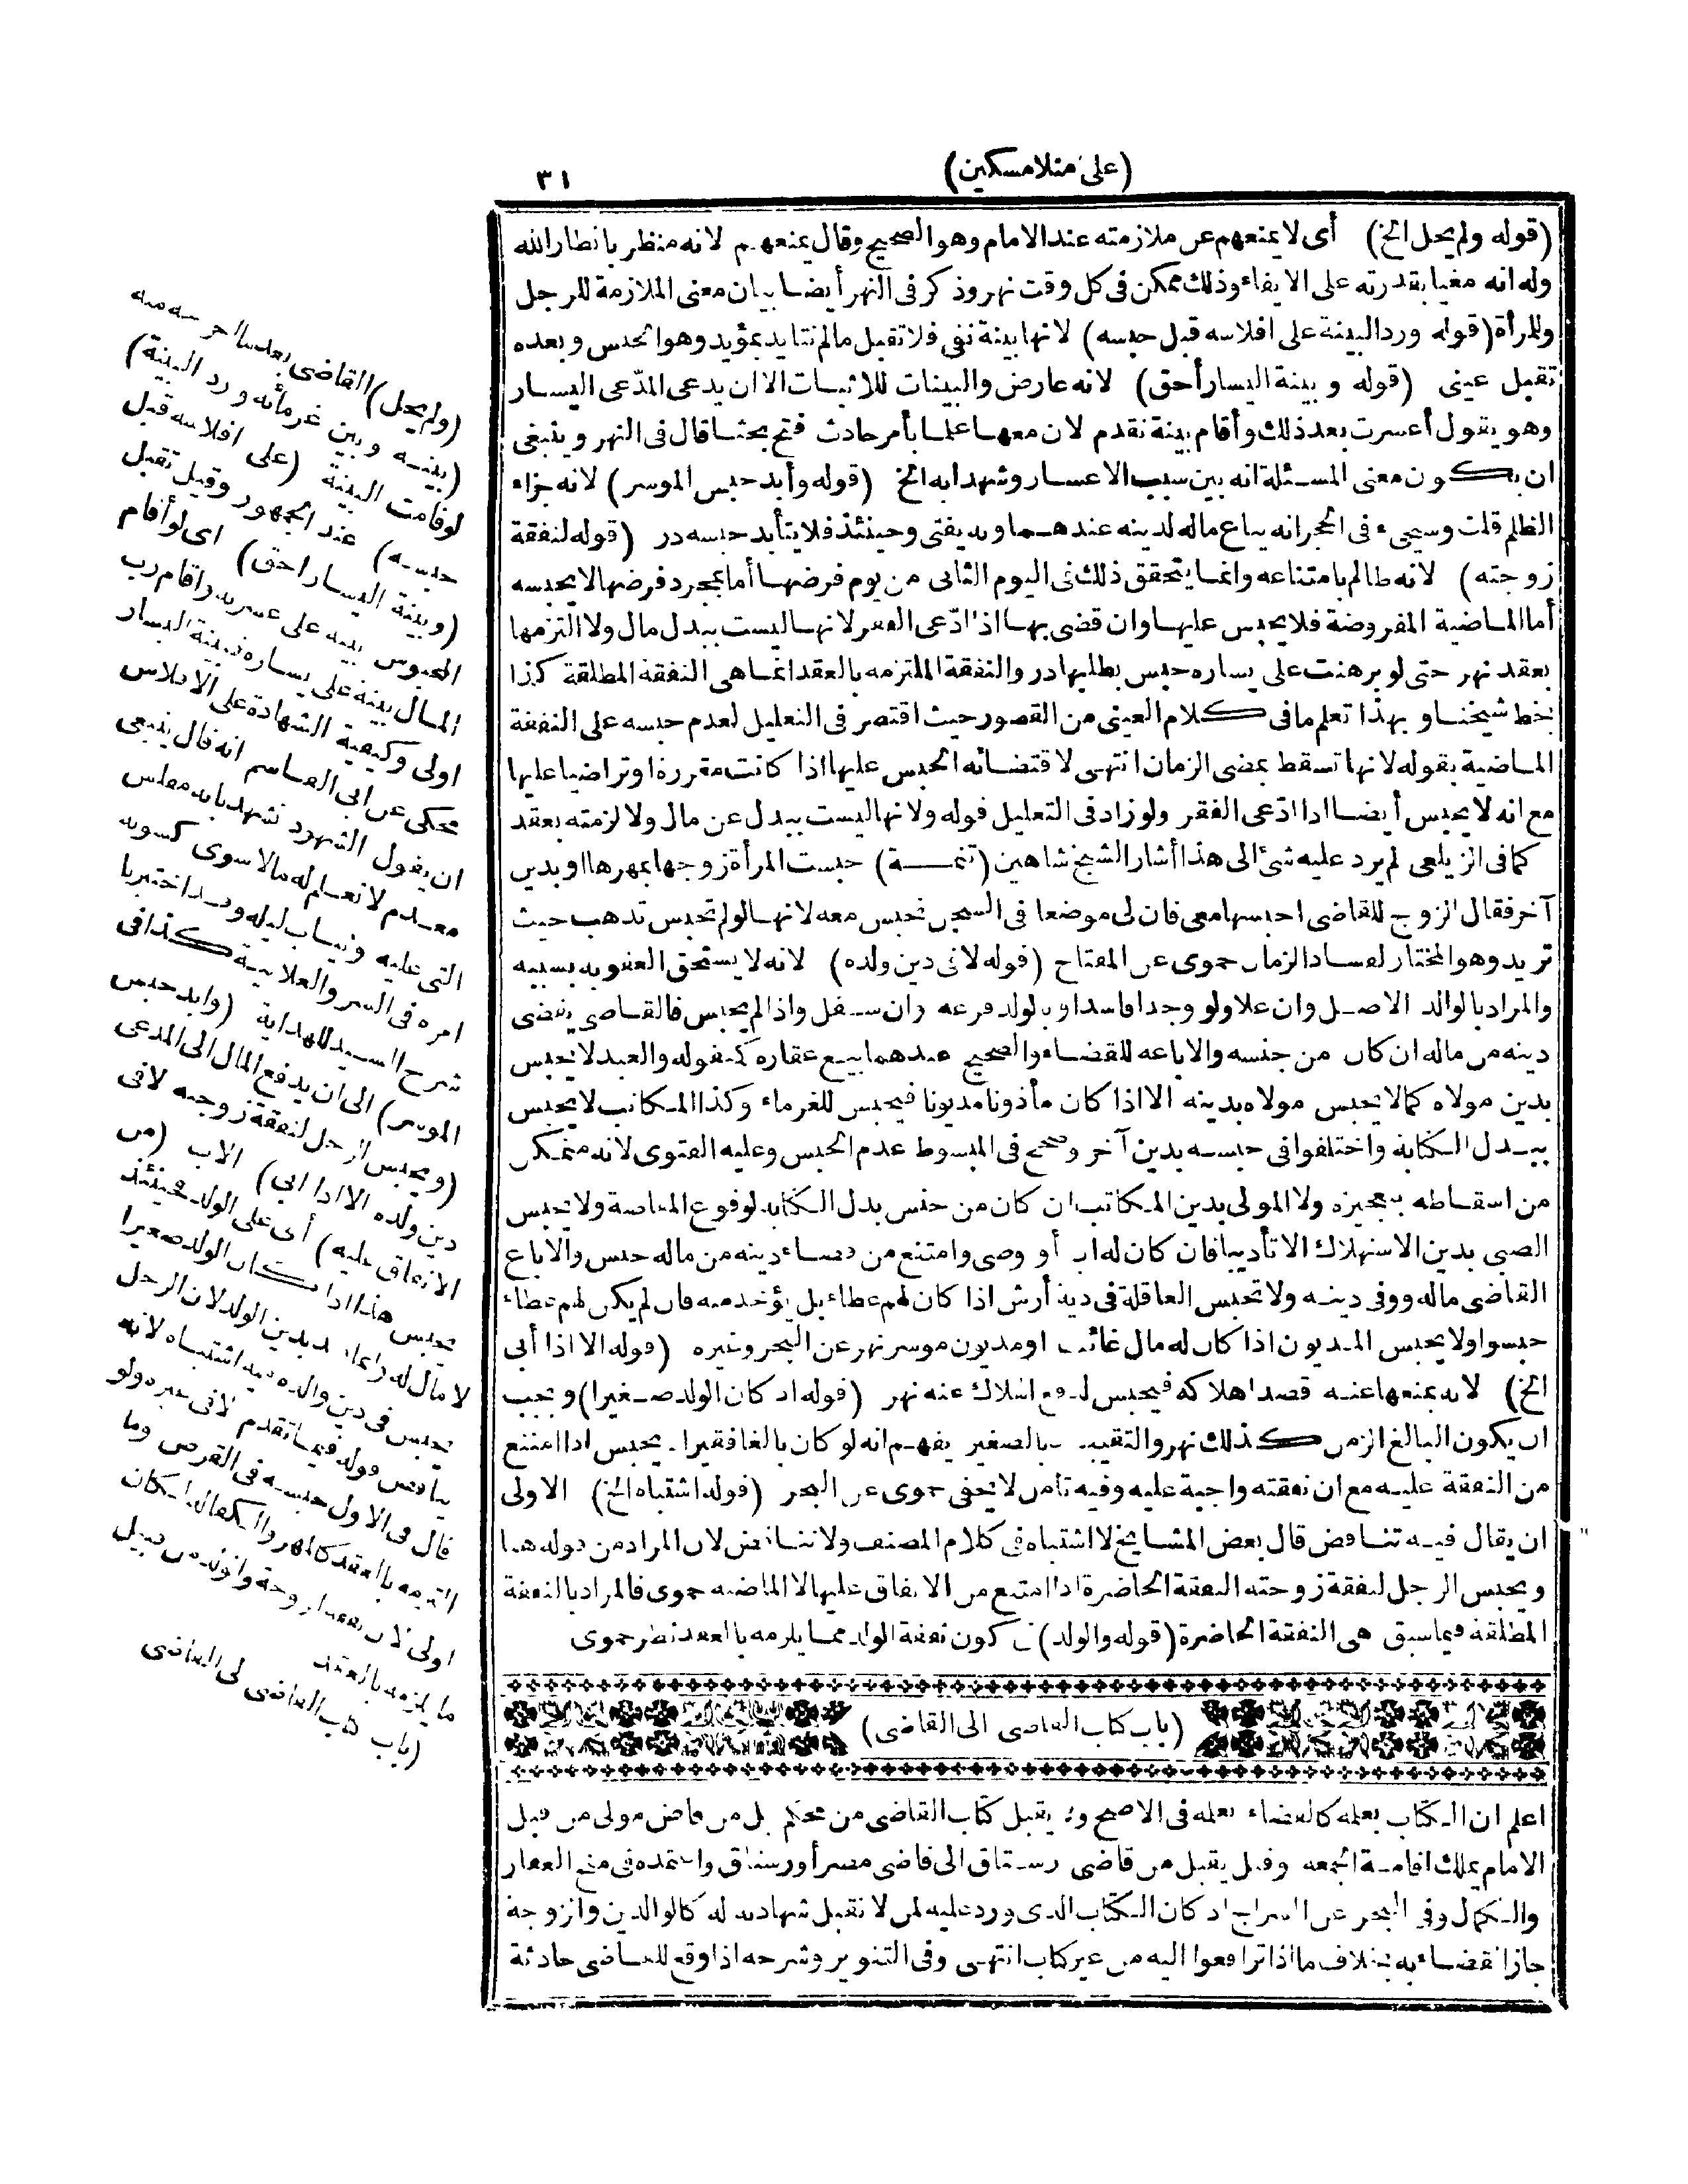 (على منلامسكين)
٣١
(قوله ولم يحل الخ) أى لا يمنعهم عن ملازمته عند الامام وهو الصحيح وقال يمنعهم لانه منظر بانظار الله
وله انه مغيا بقدرته على الايفاء وذلك ممكن فى كل وقت نهر وذكر فى النهر أيضا بيان معنى الملازمة للرجل
وللمرأة (قوله ورد البينة على افلاسه قبل حبسه) لانها بينة نفى فلا تقبل مالم تتايد بمؤيد وهو الحبس وبعده
تقبل عينى (قوله وبينة اليسار أحق) لانه عارض والبينات للاثبات الا ان يدعى المدّعى اليسار
وهو يقول أعسرت بعد ذلك وأقام بينة تقدم لان معها علما بأمر حادث فتح بحثا قال فى النهر وينبغى
ان يكون معنى المسئلة انه بين سبب الاعسار وشهدا به الخ (قوله وأبد حبس الموسر) لانه جزاء
الظلم قلت وسيجىء فى الحجر انه يباع ماله لدينه عندهما وبه يفتى وحينئذ فلا يتأبد حبسه در (قوله لنفقة
زوجته) لانه ظالم بامتناعه وانما يتحقق ذلك فى اليوم الثانى من يوم فرضها أما بمجرد فرضها لا يحبسه
أما الماضية المفروضة فلا يحبس عليها وان قضى بها اذا ادّعى الفقر لانها ليست ببدل مال ولا التزمها
بعقد نهر حتى لو برهنت على يساره حبس بطلبها در والنفقة الملتزمه بالعقد انما هى النفقة المطلقة كذا
بخط شيخنا وبهذا تعلم ما فى كلام العينى من القصور حيث اقتصر فى التعليل لعدم حبسه على النفقة
الماضية بقوله لانها تسقط بمضى الزمان انتهى لاقتضائه الحبس عليها اذا كانت مقررة او تراضيا عليها
مع انه لا يحبس أيضا اذا ادّعى الفقر ولو زاد فى التعليل قوله ولانها ليست ببدل عن مال ولا لزمته بعقد
كما فى الزيلعى لم يرد عليه شئ الى هذا أشار الشيخ شاهين (تتمــة) حبست المرأة زوجها بمهرها او بدين
آخر فقال الزوج للقاضى احبسها معى فان لى موضعا فى السجن تحبس معه لانها لو لم تحبس تذهب حيث
تريد وهو المختار لفساد الزمان حموى عن المفتاح (قوله لا فى دين ولده) لانه لا يستحق العقوبه بسببه
والمراد بالوالد الاصل وان علا ولو وجد ا فاسدا وبالولد فرعه وان سفل واذا لم يحبس فالقاضى يقضى
دينه من ماله ان كان من جنسه والا باعه للقضاء والصحيح عندهما بيع عقاره كمنقوله والعبد لا يحبس
بدين مولاه كما لا يحبس مولاه بدينه الا اذا كان مأذونا مديونا فيحبس للغرماء وكذا المكاتب لا يحبس
ببدل الكتابة واختلفوا فى حبسه بدين آخر وصحح فى المبسوط عدم الحبس وعليه الفتوى لانه متمكن
من اسقاطه بتعجيزه ولا المولى بدين المكاتب ان كان من جنس بدل الكتابة لوقوع المقاصة ولا يحبس
الصبى بدين الاستهلاك الا تأديبا فان كان له اب أو وصى وامتنع من قضاء دينه من ماله حبس والا باع
القاضى ماله ووفى دينه ولا تحبس العاقلة فى دية أرش اذا كان لهم عطاء بل يؤخذ منه فان لم يكن لهم عطاء
حبسوا ولا يحبس المديون اذا كان له مال غائب او مديون موسر نهر عن البحر وغيره (قوله الا اذا أبى
الخ) لانه بمنعها عنه قصد اهلاكه فيحبس لدفع الهلاك عنه نهر (قوله اذ كان الولد صغيرا) ويجب
ان يكون البالغ الزمن كذلك نهر والتقييد بالصغير يفهم انه لو كان بالغا فقيرا لا يحبس اذا امتنع
من النفقة عليه مع ان نفقته واجبة عليه وفيه تأمل لا يخفى حموى عن البحر (قوله اشتباه الخ) الاولى
ان يقال فيه تناقض قال بعض المشايخ لا اشتباه فى كلام المصنف ولا تناقض لان المراد من قوله هنا
ويحبس الرجل لنفقة زوجته النفقة الحاضرة اذا امتنع من الانفاق عليها لا الماضيه حموى فالمراد بالنفقة
المطلقة فيما سبق هى النفقة الحاضرة (قوله والولد) فى كون نفقة الولد مما يلزمه بالعقد نظر حموى
(باب كتاب القاضى الى القاضى)
اعلم ان الكتاب بعلمه كالقضاء بعلمه فى الاصح ولا يقبل كتاب القاضى من محكم بل من قاض مولى من قبل
الامام يملك اقامة الجمعه وقيل يقبل من قاضى رستاق الى قاضى مصر أو رستاق واعتمده فى منح الغفار
والكمال وفى البحر عن السراج اذ كان الكتاب الذى ورد عليه لمن لا تقبل شهادته له كالوالدين والزوجة
جاز القضاء به بخلاف ما اذا ترافعوا اليه من غير كتاب انتهى وفى التنوير وشرحه اذا وقع للقاضى حادثة
(ولم يحل) القاضى بعد ما اخرجه منه
(بينه وبين غرمائه ورد البينة)
لو قامت البينة (على افلاسه قبل
حبسه) عند الجمهور وقيل تقبل
(وبينة اليسار احق) اى لو أقام
المحبوس بينة على عسرته واقام رب
المال بينة على يساره فبينة اليسار
اولى وكيفية الشهادة على الافلاس
محكى عن ابى القاسم انه قال ينبغى
ان يقول الشهود نشهد بانه مفلس
معدم لا نعلم له مالا سوى كسوته
التى عليه وثياب ليله وقد اختبرنا
امره فى السر والعلانية كذا فى
شرح السيد للهداية (وابد حبس
الموسر) الى ان يدفع المال الى المدعى
(ويحبس الرجل لنفقة زوجته لا فى
دين ولده الا اذا ابى) الاب (من
الانفاق عليه) أى على الولد فحينئذ
يحبس هذا اذا كان الولد صغيرا
لا مال له وانما
يحبس فى دين والده فيه اشتباه لانه
يناقض قوله فيما تقدم لا فى غيره ولو
قال فى الاول حبسه فى القرض وما
التزمه بالعقد كالمهر والكفالة لكان
اولى لان نفقة الزوجة والولد من قبيل
ما يلزمه بالعقد
(باب كتاب القاضى الى القاضى